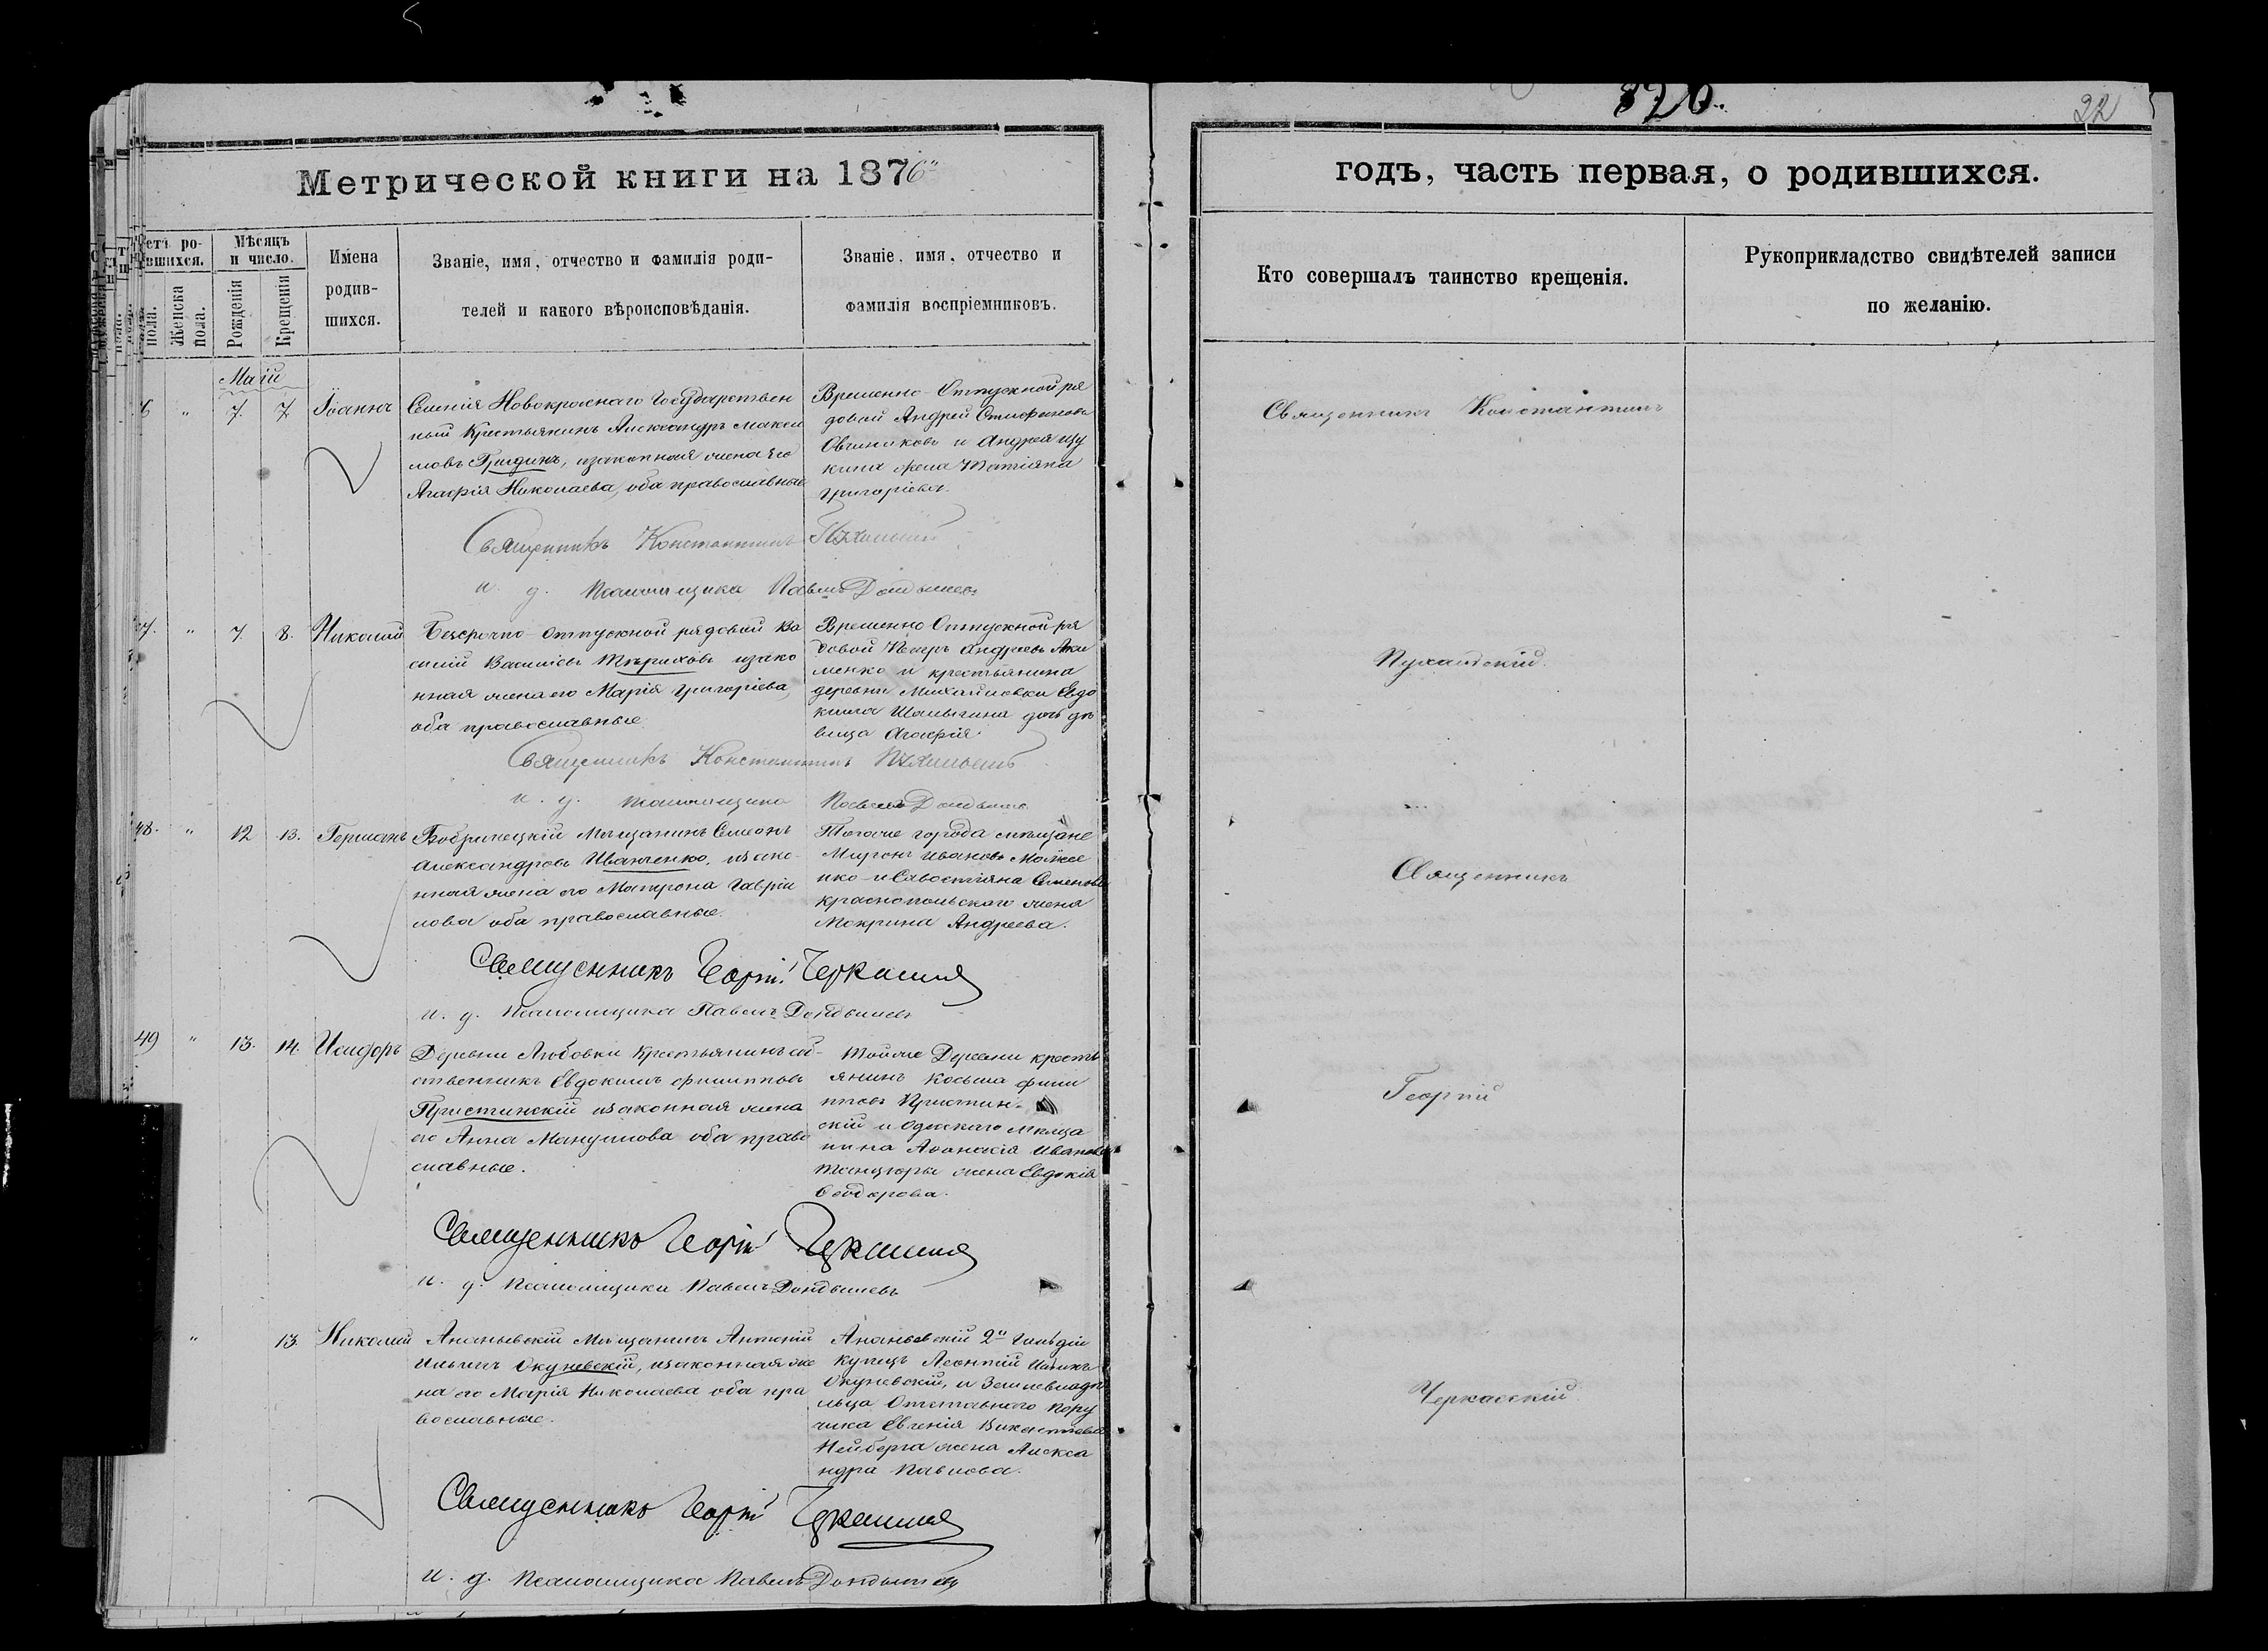 820.
22
Метрической книги на 1876й
годъ, часть первая, о родившихся.
Мѣсяцъ
и число.
Женска
пола.
Рожденія
Крещенія
Имена
родив-
шихся.
Званіе, имя, отчество и фамилія роди-
телей и какого вѣроисповѣданія.
Званіе, имя, отчество и
фамилія воспріемниковъ.
Кто совершалъ таинство крещенія.
Рукоприкладство свидѣтелей записи
по желанію.
Маій
6 " 7. 7. Іоаннъ
Селенія Новокраснаго Государствен
ный Крестьянинъ Александръ Макси
мовъ Гридинъ, изаконная жена его
Агафія Николаева, оба православные
Временно-Отпускной ря
довой Андрей Стефановъ
Овчиниковъ и Андрея
жена Татіяна
Григоріева.
Священникъ Константинъ
и. д. псаломщика Павелъ
7. " 7. 8. Николай
Безсрочно отпускной рядовой Ва
силій Васильевъ изако
нная жена его Марія Григоріева,
оба православные
Временно Отпускной ря
довой Петръ Андреевъ Аки
менко и крестьянина
деревни Михайловки Евдо
кима дочь дѣ
вица Агафія
Священникъ Константинъ
и. д. псаломщика Павелъ
48. " 12 13. Германъ
Бобринецкій Мѣщанинъ Симеонъ
Александровъ Иванченко, изако-
нная жена его Матрона Гаврии
лова оба православные.
Тогоже города мѣщане
Миронъ Ивановъ
нко и Савостіяна Семенова
краснопольскаго жена
Мокрина Андреева.
Священникъ Георгій Черкасскій
и. д. псаломщика Павелъ
49 " 13. 14. Исидоръ
Деревни Любовки Крестьянинъ соб-
ственникъ Евдокимъ Филипповъ
Пристинскій изаконная жена
его Анна Мануилова оба право
славные.
Тойже Деревни кресть
янинъ Косьма Фили
пповъ Пристин-
скій и Одесскаго мѣща
нина Аѳанасія Иванова
жена Евдокія
Ѳеодорова.
Священникъ Георгій Черкасскій
и. д. псаломщика Павелъ
" 13. Николай
Ананьевскій Мѣщанинъ Антоній
Ильинъ Окуневскій, изаконная же
на его Марія Николаева оба пра
вославные.
Ананьевскій 2й Гильдіи
купецъ Леонтій Ильинъ
Окуневскій, и Землевладѣ
льца Отставного Пору
чика Евгенія
Нейберга жена Алекса
ндра Павлова.
Священникъ Георгій Черкасскій
и. д. псаломщика Павелъ
Священникъ Константинъ
Священникъ
Георгій
Черкасскій